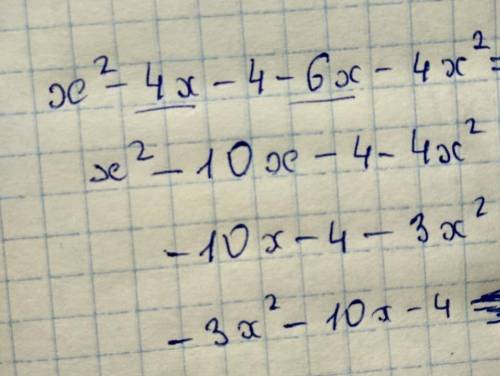 x² - 4x - 4 - 6x - 4x² =
x² - 10x - 4 - 4x²
- 10x - 4 - 3x²
- 3x² - 10x - 4